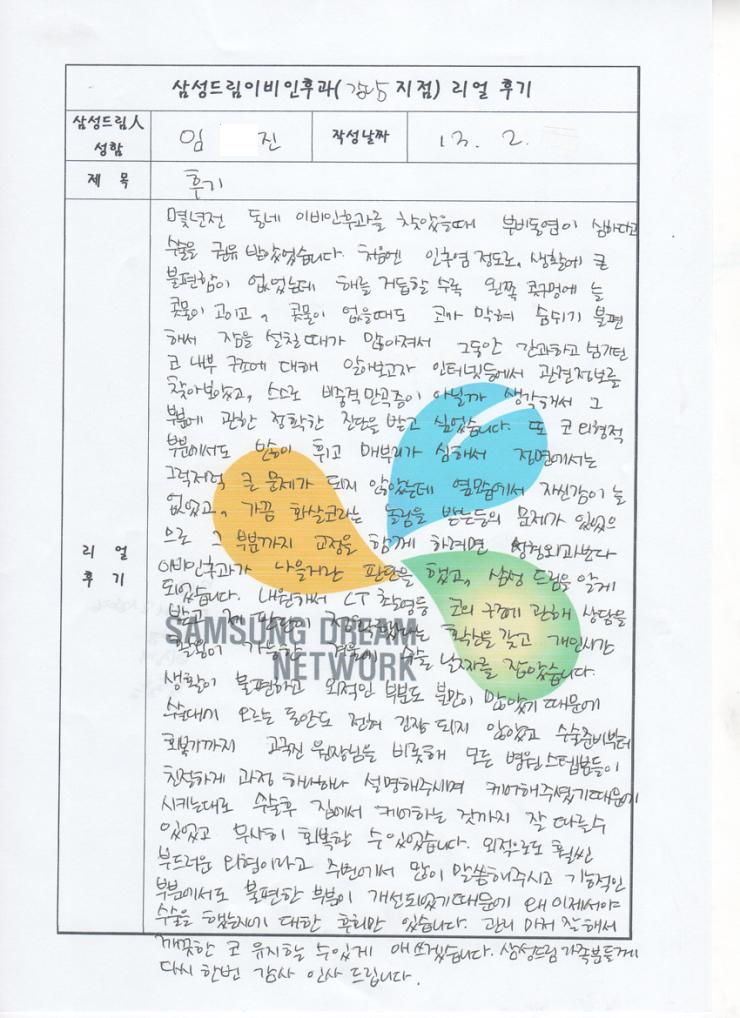 삼성드림이비인후과(강남 지점) 리얼 후기
삼성드림人 성함
임 진
작성날짜
13. 2.
제 목
후기
리 얼 후 기
몇년전 동네 이비인후과를 찾았을때 부비동염이 심하다고
수술을 권유 받았었습니다. 처음엔 인후염 정도로, 생활에 큰
불편함이 없었는데 해를 거듭할 수록 왼쪽 콧구멍에 늘
콧물이 고이고, 콧물이 없을때도 코가 막혀 숨쉬기 불편
해서 잠을 설칠때가 많아져서 그동안 간과하고 넘기던
코 내부 구조에 대해 알아보고자 인터넷등에서 관련정보를
찾아보았고, 스스로 비중격만곡증이 아닐까 생각해서 그
부분에 관한 정확한 진단을 받고 싶었습니다. 또 코 외형적
부분에서도 많이 휘고 매부리가 심해서 정면에서는
그럭저럭 큰 문제가 되지 않았는데 옆모습에서 자신감이 늘
없었고, 가끔 화살코라는 놀림을 받는등의 문제가 있었으
므로 그 부분까지 교정을 함께 하려면 성형외과보다
이비인후과가 나을거란 판단을 했고, 삼성 드림을 알게
되었습니다. 내원해서 CT 촬영등 코의 구조에 관해 상담을
받고 제 판단이 확신을 갖고 개인시간
활용이 가능한 겨울에 수술 날짜를 잡았습니다.
SAMSUNG DREAM
NETWORK
생활이 불편하고 외적인 부분도 불만이 많았기 때문에
수술대에 오르는 동안도 전혀 긴장 되지 않았고 수술준비부터
회복기까지 원장님을 비롯해 모든 병원 스텝분들이
친절하게 과정 하나하나 설명해주시며 케어해주셨기때문에
시키는대로 수술후 집에서 케어하는 것까지 잘 따를수
있었고 무사히 회복할 수 있었습니다. 외적으로도 훨씬
부드러운 외형이라고 주변에서 많이 말씀해주시고 기능적인
부분에서도 불편한 부분이 개선되었기때문에 왜 이제서야
수술을 했는지에 대한 후회만 있습니다. 관리 마저 잘해서
깨끗한 코 유지할 수있게 애쓰겠습니다. 삼성드림 가족분들께
다시 한번 감사 인사 드립니다.